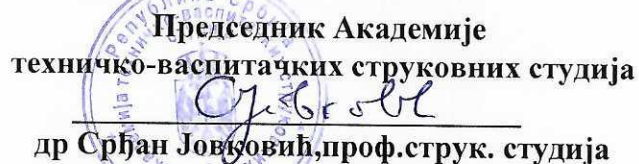 Председник Академије
техничко-васпитачких струковних студија
др Срђан Јовковић,проф.струк. студија